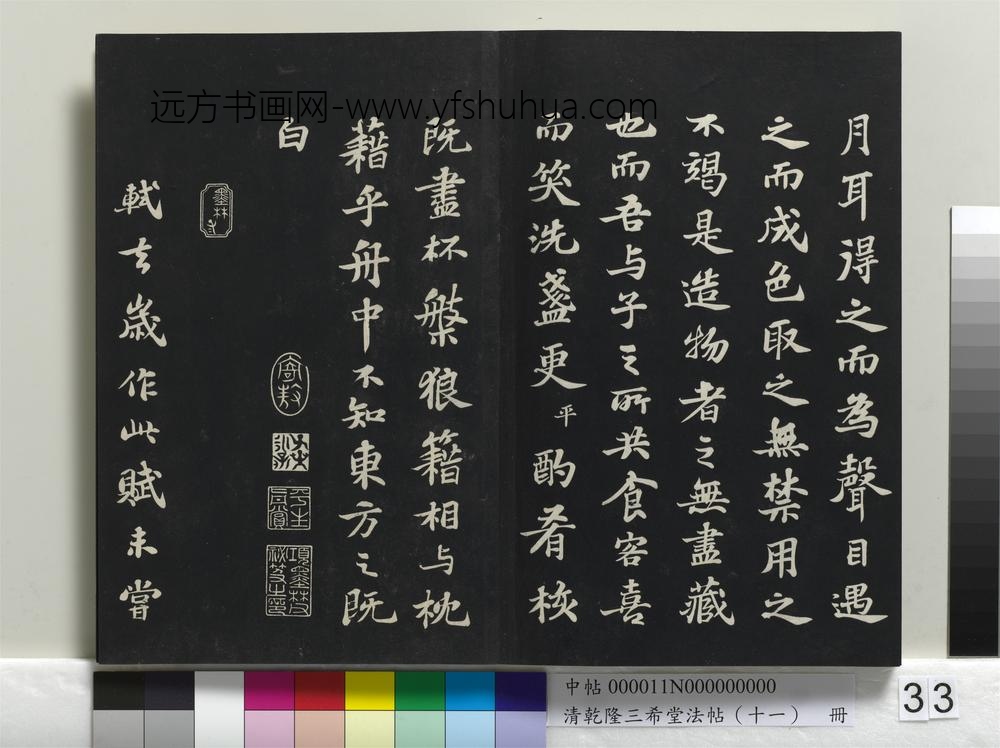 远方书画网-www.yfshuhua.com
月耳得之而為聲目遇
之而成色取之無禁用之
不竭是造物者之無盡藏
也而吾与子之所共食客喜
而笑洗盞更平酌肴核
既盡杯槃狼籍相与枕
藉乎舟中不知東方之既
白
墨林
平生真賞
項墨林父祕笈之印
軾去歲作此賦未嘗
中帖 000011N000000000
清乾隆三希堂法帖（十一） 冊
33